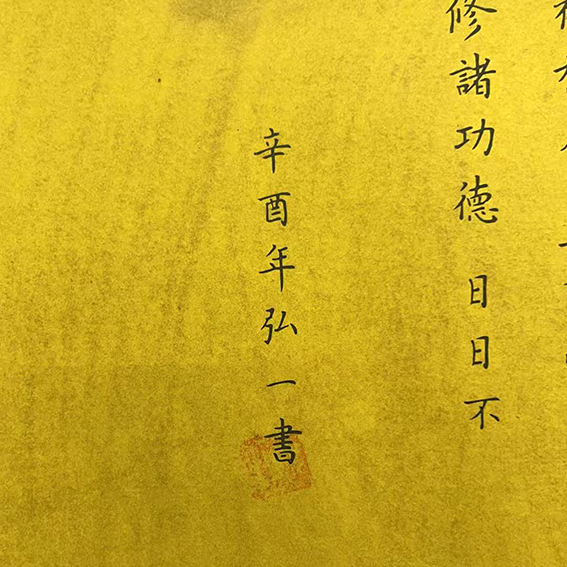 修諸功德 日日不
辛酉年弘一書